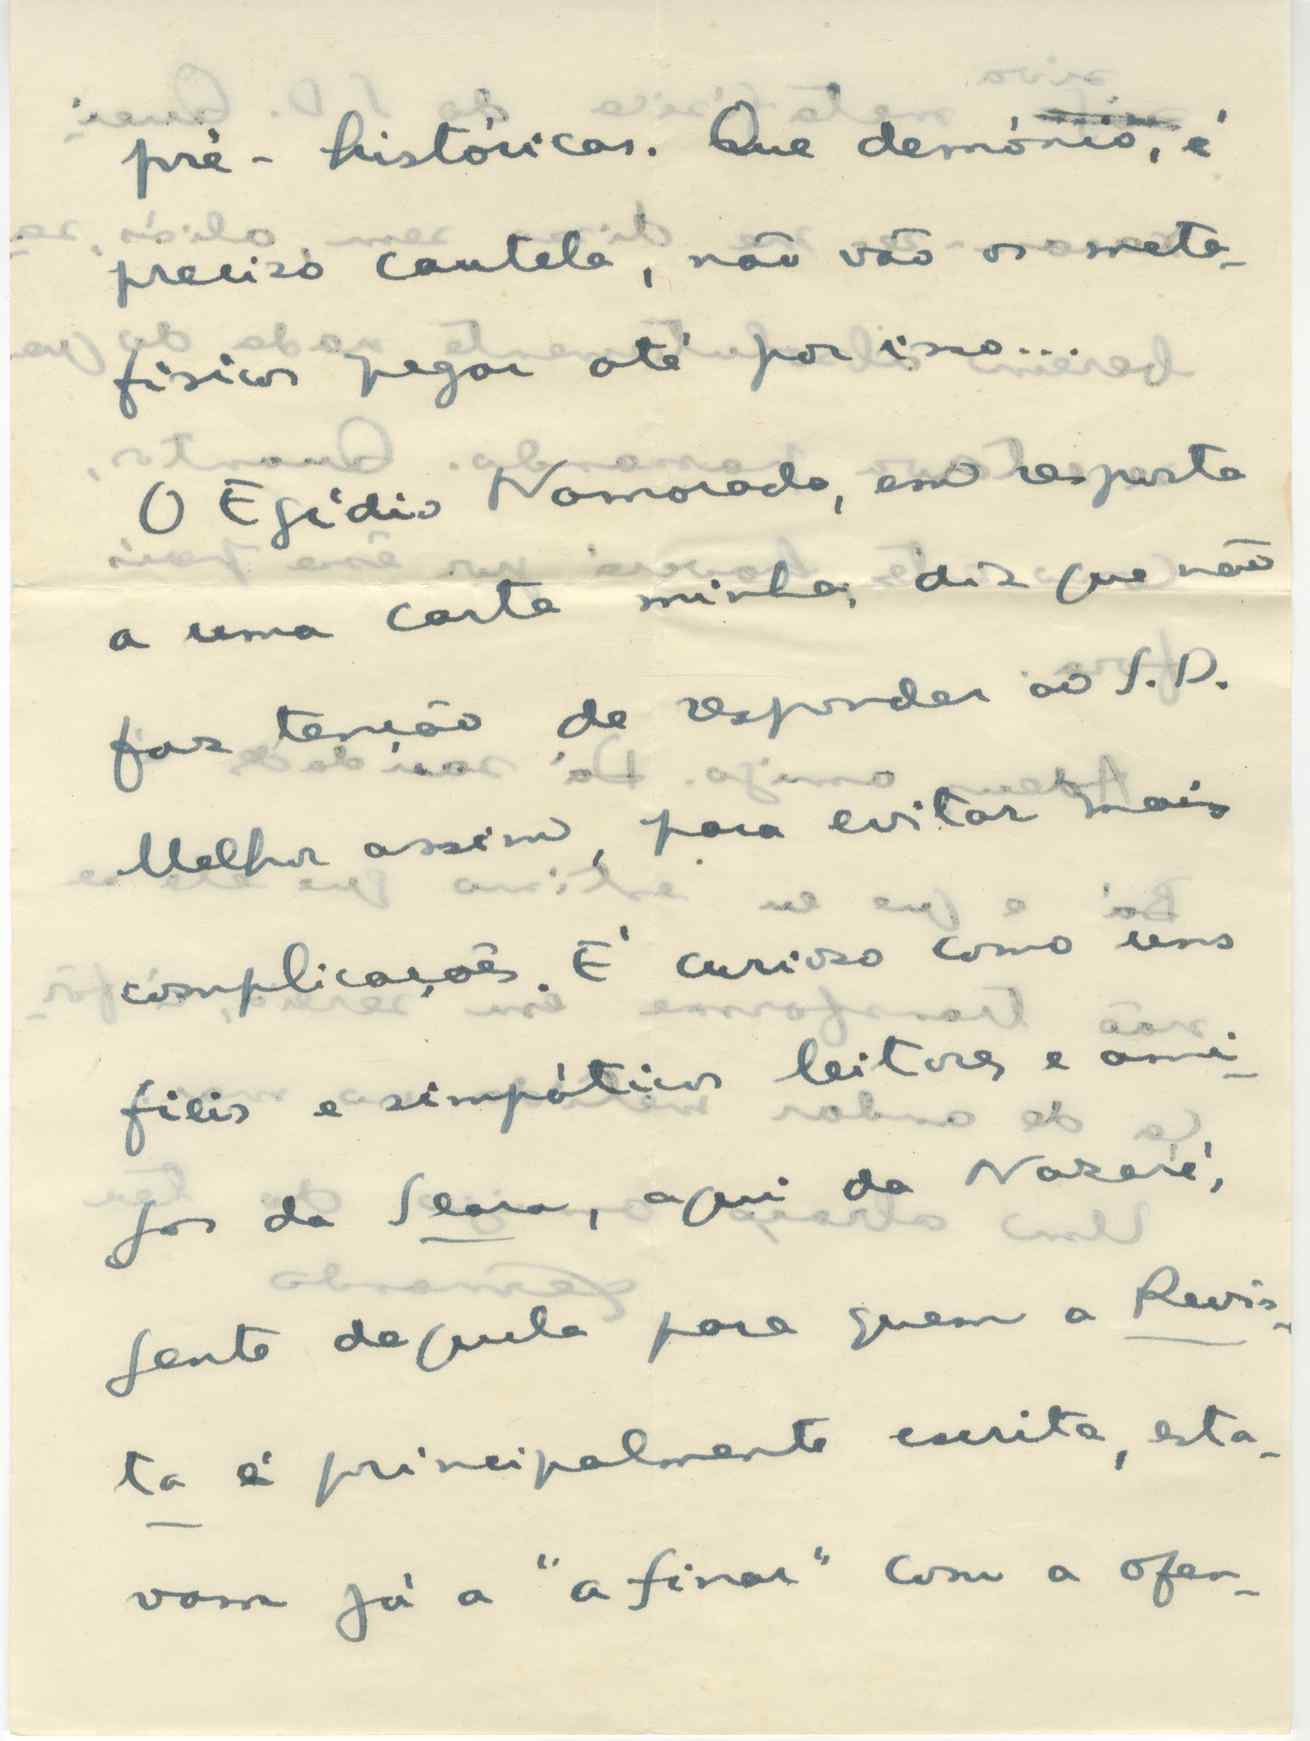 pré-históricas. Que demónio, é
preciso cautela, não vão os meta-
físicos pegar até por isso...
O Egídio Namorado, em resposta
a uma carta minha, diz que não
faz tenção de responder ao S.D.
Melhor assim, para evitar mais
complicações. É curioso como uns
fieis e simpáticos leitores e ami-
gos da Seara, aqui da Nazaré,
gente daquela para quem a Revis-
ta é principalmente escrita, esta-
vam já a "afinar" com a ofen-